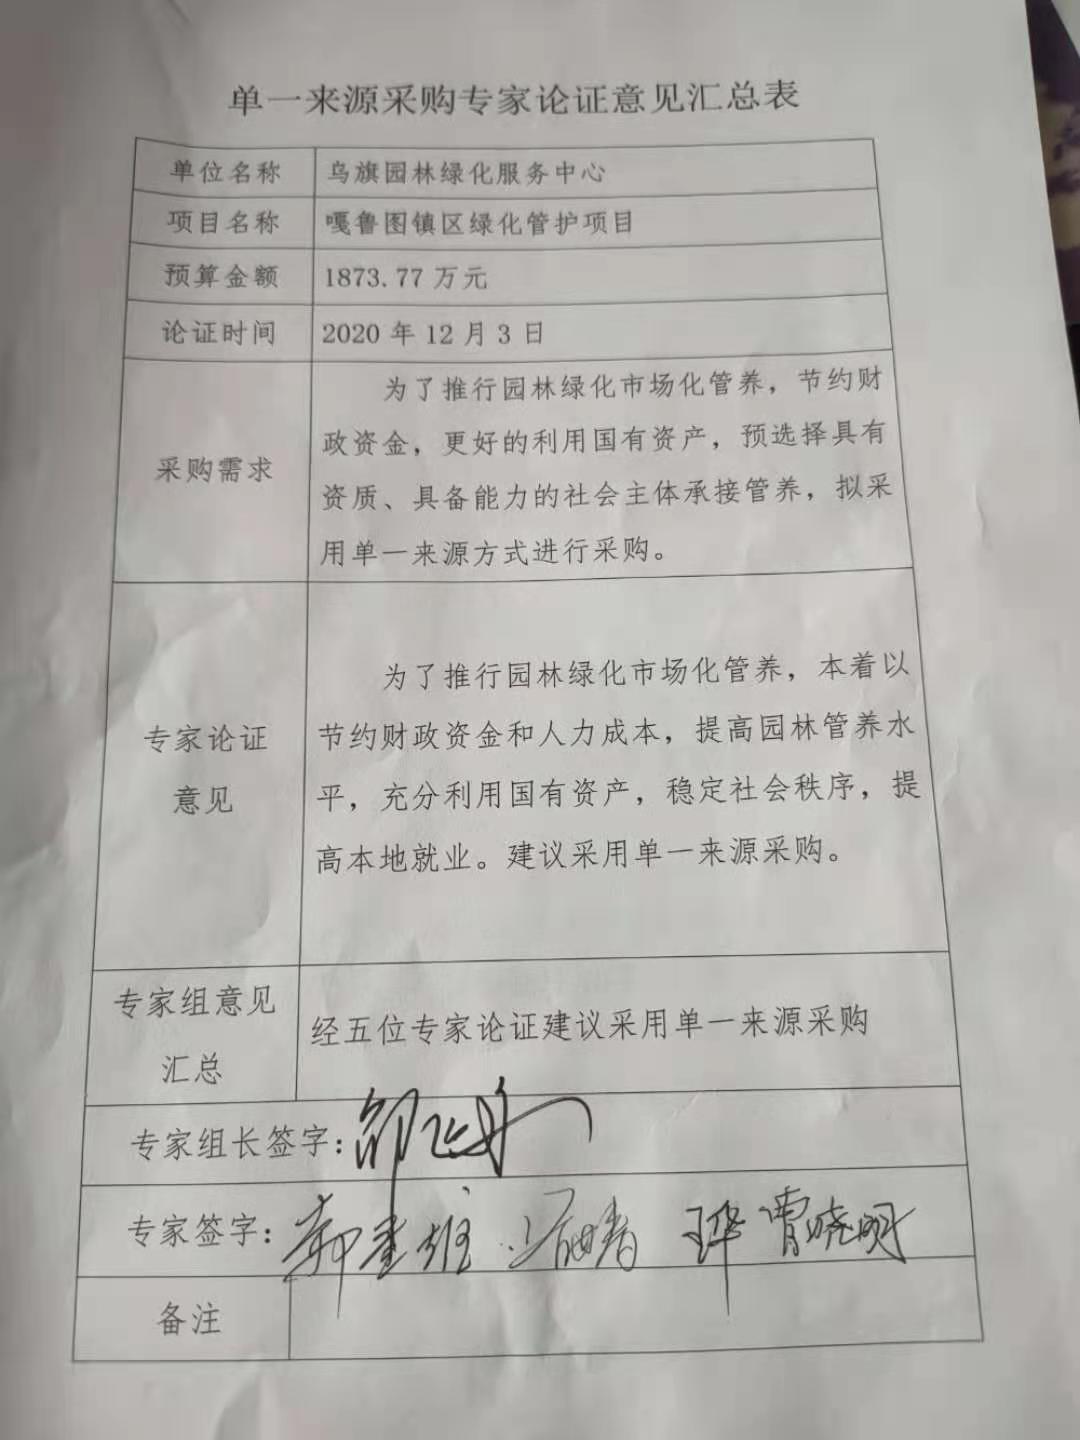 单一来源采购专家论证意见汇总表
单位名称 乌旗园林绿化服务中心
项目名称 嘎鲁图镇区绿化管护项目
预算金额 1873.77 万元
论证时间 2020 年 12 月 3 日
为了推行园林绿化市场化管养，节约财
政资金，更好的利用国有资产，预选择具有
采购需求
资质、具备能力的社会主体承接管养，拟采
用单一来源方式进行采购。
为了推行园林绿化市场化管养，本着以
专家论证
节约财政资金和人力成本，提高园林管养水
意见
平，充分利用国有资产，稳定社会秩序，提
高本地就业。建议采用单一来源采购。
专家组意见
汇总
经五位专家论证建议采用单一来源采购
专家组长签字：
专家签字： 曹晓明
备注